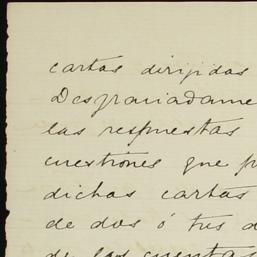 cartas dirijidas
Desgraciadame
las respuestas
cuestiones que p
dichas cartas
de dos ó tres d
de las cuentas